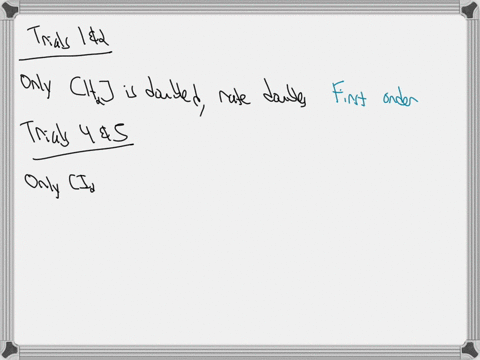 Trials 1&2
Only [H₂] is doubled, rate doubles First order
Trials 4 & 5
Only [I₂